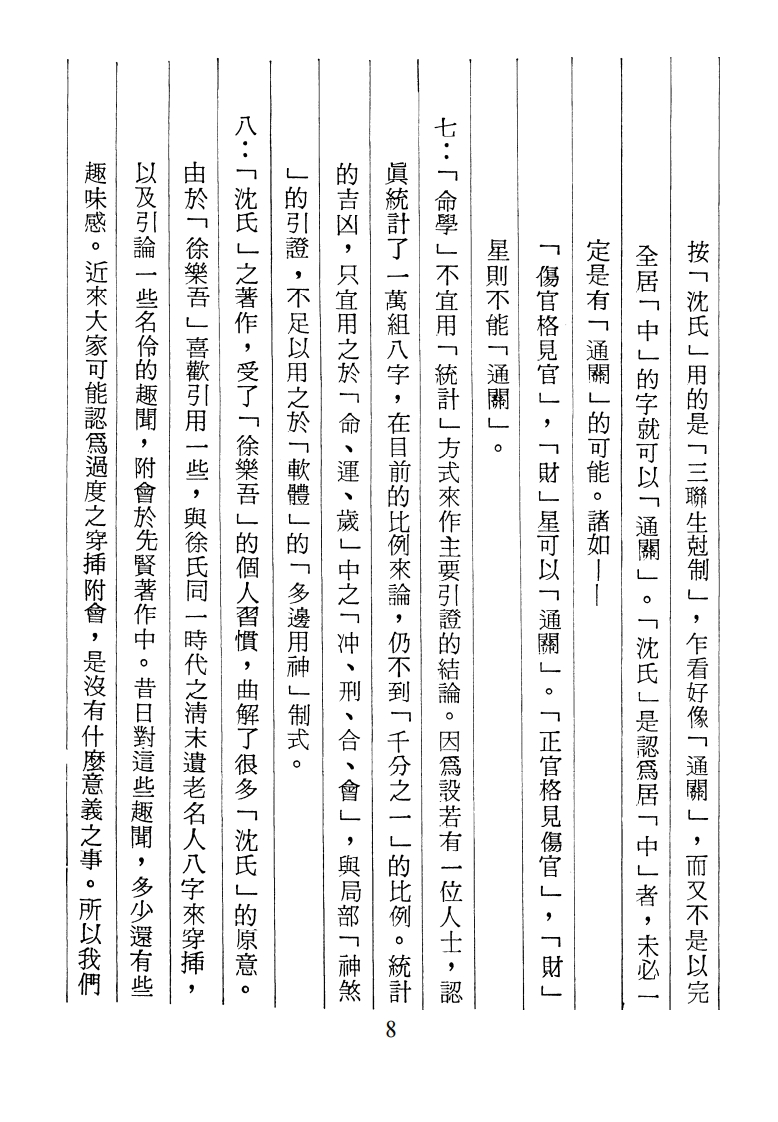 按「沈氏」用的是「三聯生尅制」，乍看好像「通關」，而又不是以完
全居「中」的字就可以「通關」。「沈氏」是認爲居「中」者，未必一
定是有「通關」的可能。諸如——
「傷官格見官」，「財」星可以「通關」。「正官格見傷官」，「財」
星則不能「通關」。
七：「命學」不宜用「統計」方式來作主要引證的結論。因爲設若有一位人士，認
眞統計了一萬組八字，在目前的比例來論，仍不到「千分之一」的比例。統計
的吉凶，只宜用之於「命、運、歲」中之「冲、刑、合、會」，與局部「神煞
」的引證，不足以用之於「軟體」的「多邊用神」制式。
八：「沈氏」之著作，受了「徐樂吾」的個人習慣，曲解了很多「沈氏」的原意。
由於「徐樂吾」喜歡引用一些，與徐氏同一時代之清末遺老名人八字來穿挿，
以及引論一些名伶的趣聞，附會於先賢著作中。昔日對這些趣聞，多少還有些
趣味感。近來大家可能認爲過度之穿挿附會，是沒有什麼意義之事。所以我們
8